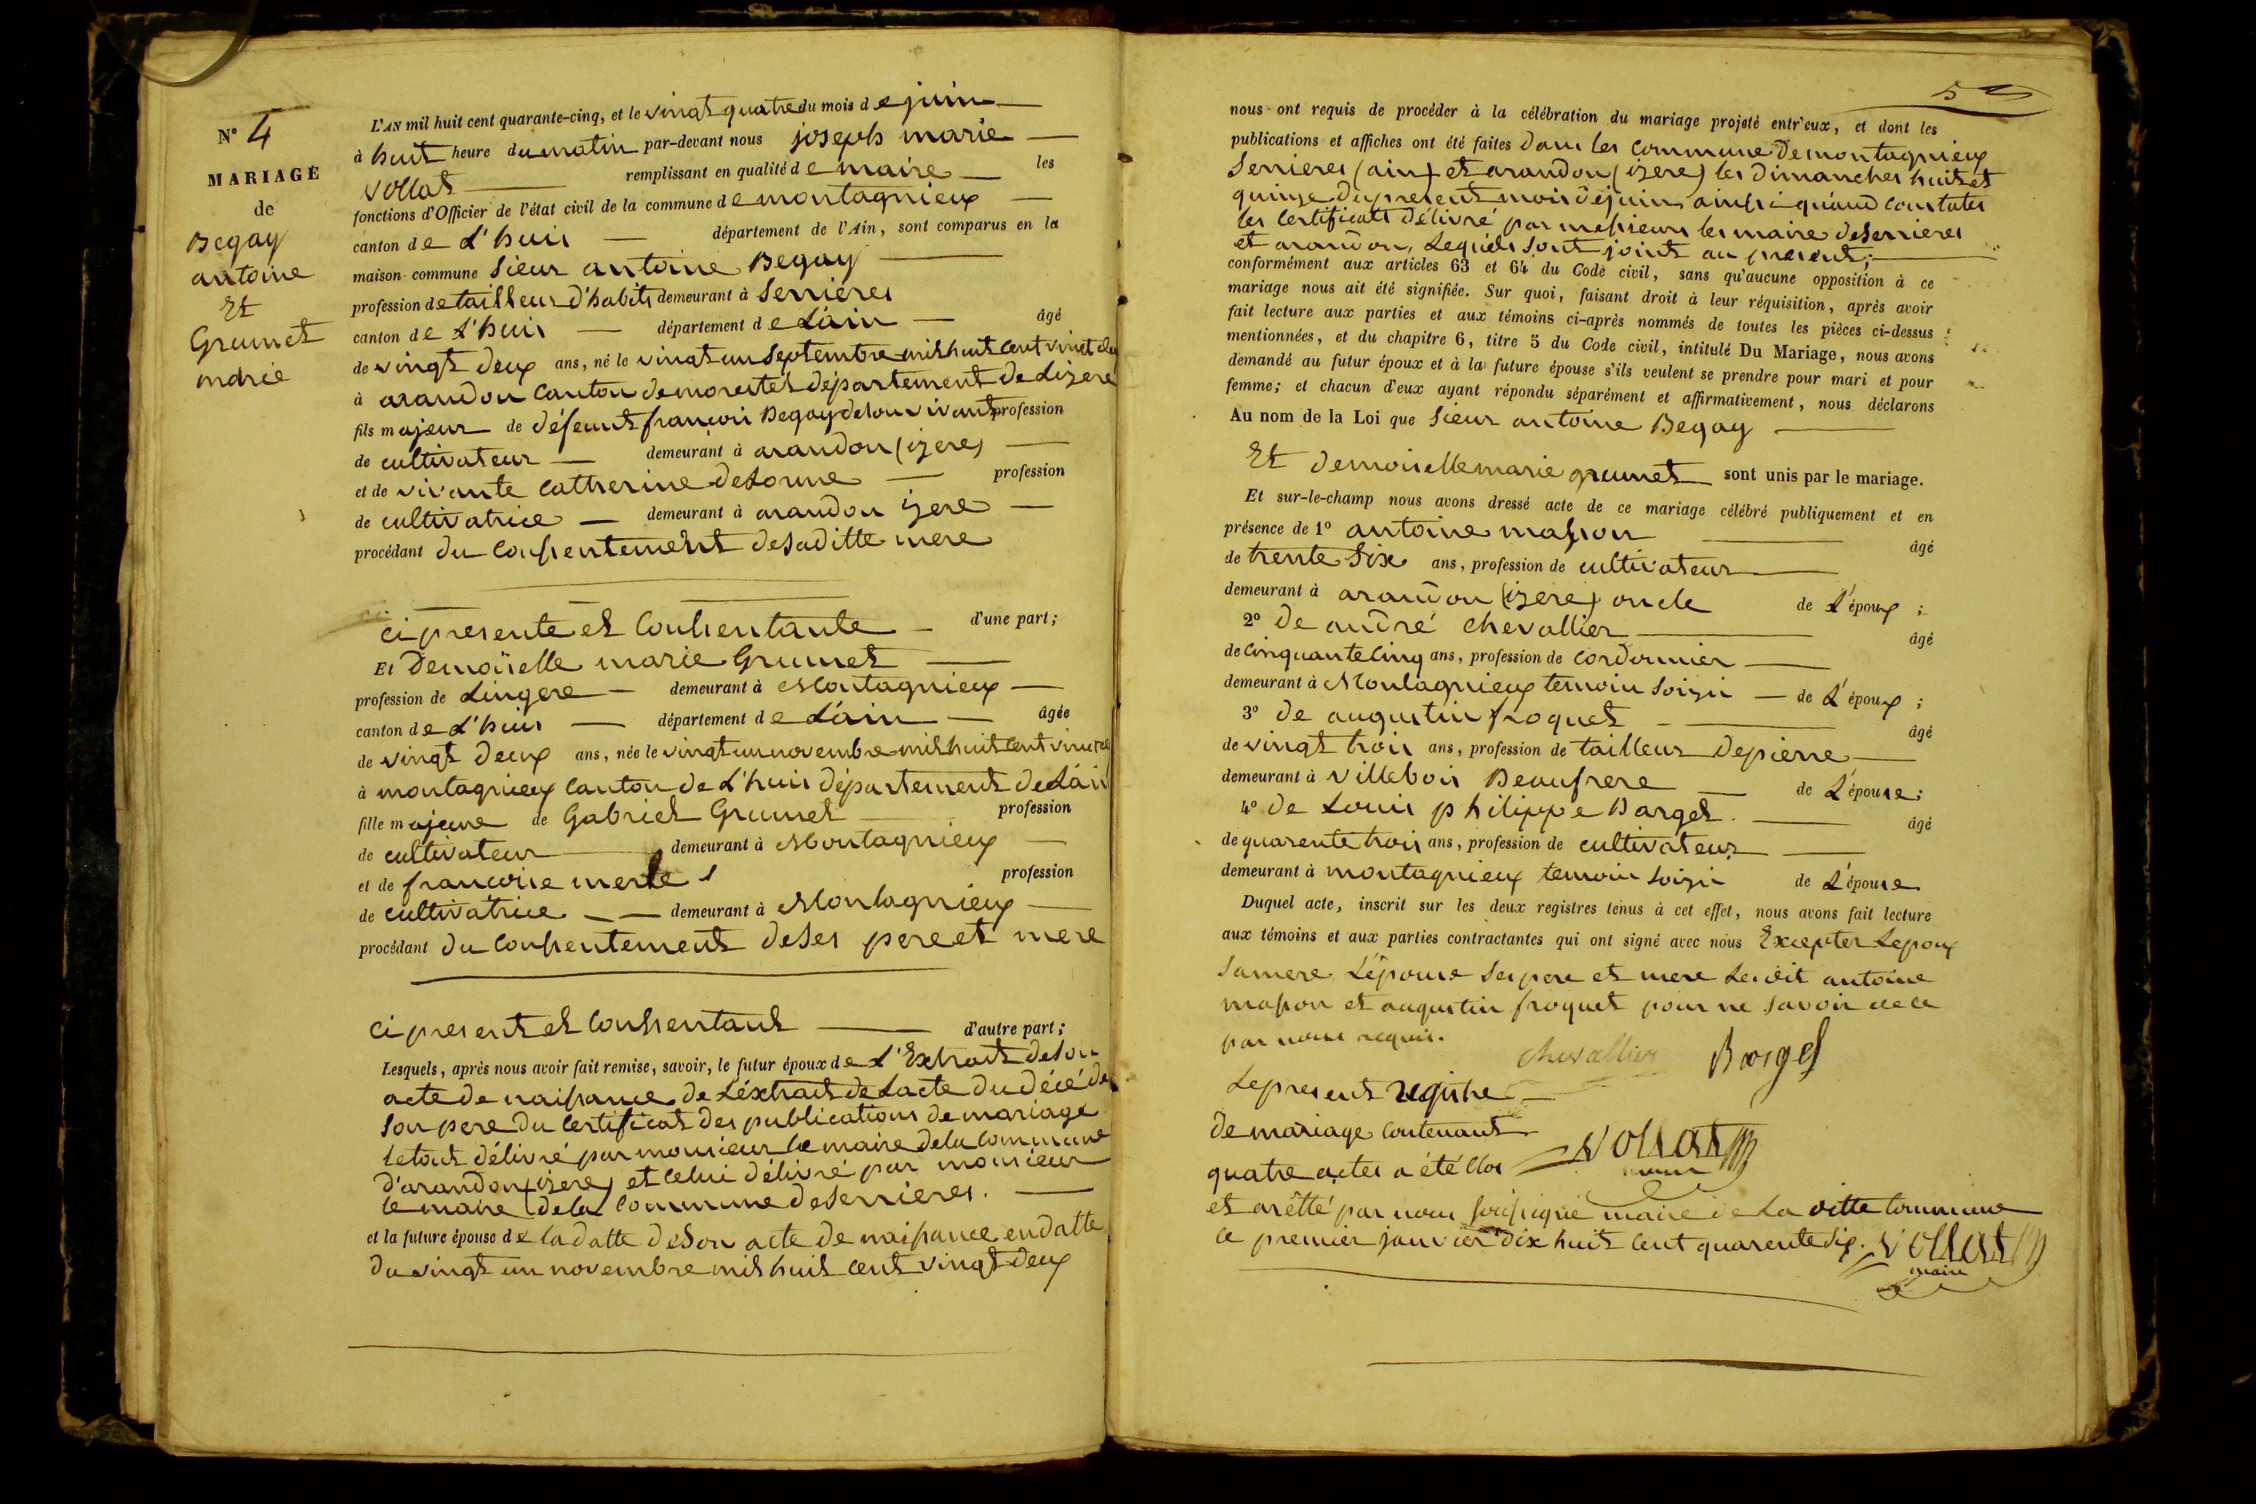 N° 4
MARIAGE
de
Begay
antoine
Et
Grumet
marie
L'AN mil huit cent quarante-cinq, et le vingt quatre du mois de juin
à huit heure du matin par-devant nous joseph marie
vollat remplissant en qualité de maire les
fonctions d'Officier de l'état civil de la commune de montagnieux
canton de L'huis département de l'Ain, sont comparus en la
maison commune Sieur antoine Begay
profession de tailleur d'habits demeurant à Serrieres
canton de L'huis département de L'ain âgé
de vingt deux ans, né le vingt un Septembre mil huit cent vingt deux
à arandon canton de morestel département de Lizere
fils majeur de défeunt françois Begay de son vivant profession
de cultivateur demeurant à arandon (izere)
et de vivante catherine deLorme profession
de cultivatrice demeurant à arandon izere
procédant du consentement de saditte mere
ci presente et Consentante d'une part;
Et Demoiselle marie Grumet
profession de Lingere demeurant à Montagnieux
canton de L'huis département de L'ain âgée
de vingt deux ans, née le vingt un novembre mil huit cent vingt deux
à montagnieux canton de L'huis département de L'ain
fille majeure de Gabriel Grumet profession
de cultivateur demeurant à Montagnieux
et de françoise merle profession
de cultivatrice demeurant à Montagnieux
procédant du consentement de ses pere et mere
ci present et Consentant d'autre part;
Lesquels, après nous avoir fait remise, savoir, le futur époux de L'Extrait de son
acte de naissance de L'éxtrait de Lacte du décé de
son pere du certificat des publications de mariage
le tout délivré par monsieur le maire de la commune
d'arandon (izere) et celui délivré par monsieur
le maire de la Commune de Serrieres.
et la future épouse de la datte de Son acte de naissance en datte
du vingt un novembre mil huit cent vingt deux
5
nous ont requis de procéder à la célébration du mariage projeté entr'eux, et dont les
publications et affiches ont été faites dans les commune de montagnieux
Serrieres (ain) et arandon (izere) les dimanches huit et
quinze du present mois de juin, ainsi quand constater
les Certificats délivré par messieurs les maire de Serrieres
et arandon, Lequels sont joints au present;
conformément aux articles 63 et 64 du Code civil, sans qu'aucune opposition à ce
mariage nous ait été signifiée. Sur quoi, faisant droit à leur réquisition, après avoir
fait lecture aux parties et aux témoins ci-après nommés de toutes les pièces ci-dessus
mentionnées, et du chapitre 6, titre 5 du Code civil, intitulé Du Mariage, nous avons
demandé au futur époux et à la future épouse s'ils veulent se prendre pour mari et pour
femme; et chacun d'eux ayant répondu séparément et affirmativement, nous déclarons
Au nom de la Loi que Sieur antoine Begay
Et demoiselle marie grumet sont unis par le mariage.
Et sur-le-champ nous avons dressé acte de ce mariage célébré publiquement et en
présence de 1° antoine masson âgé
de trente Six ans, profession de cultivateur
demeurant à arandon (izere) oncle de L'époux;
2° De andré chevallier âgé
de Cinquante Cinq ans, profession de cordonnier
demeurant à Montagnieux temoin Soizii de L'époux;
3° de augustin froquet âgé
de vingt trois ans, profession de tailleur de pierre
demeurant à villebois Beaufrere de L'épouse;
4° de Louis philippe Barget. âgé
de quarente trois ans, profession de cultivateur
demeurant à montagnieux temoin Soizii de L'épouse
Duquel acte, inscrit sur les deux registres tenus à cet effet, nous avons fait lecture
aux témoins et aux parties contractantes qui ont signé avec nous Excepter Lepoux
Samere L'épouse Ses pere et mere Ledit antoine
masson et augustin froquet pour ne Savoir de ce
par nous requis.
chevallier Barget
Le present registre
de mariage contenant
quatre actes a été Clos vollat
maire
et arêtté par nous Soussigné maire de La ditte Commune
Ce premier janvier dix huit cent quarente Six. vollat
maire